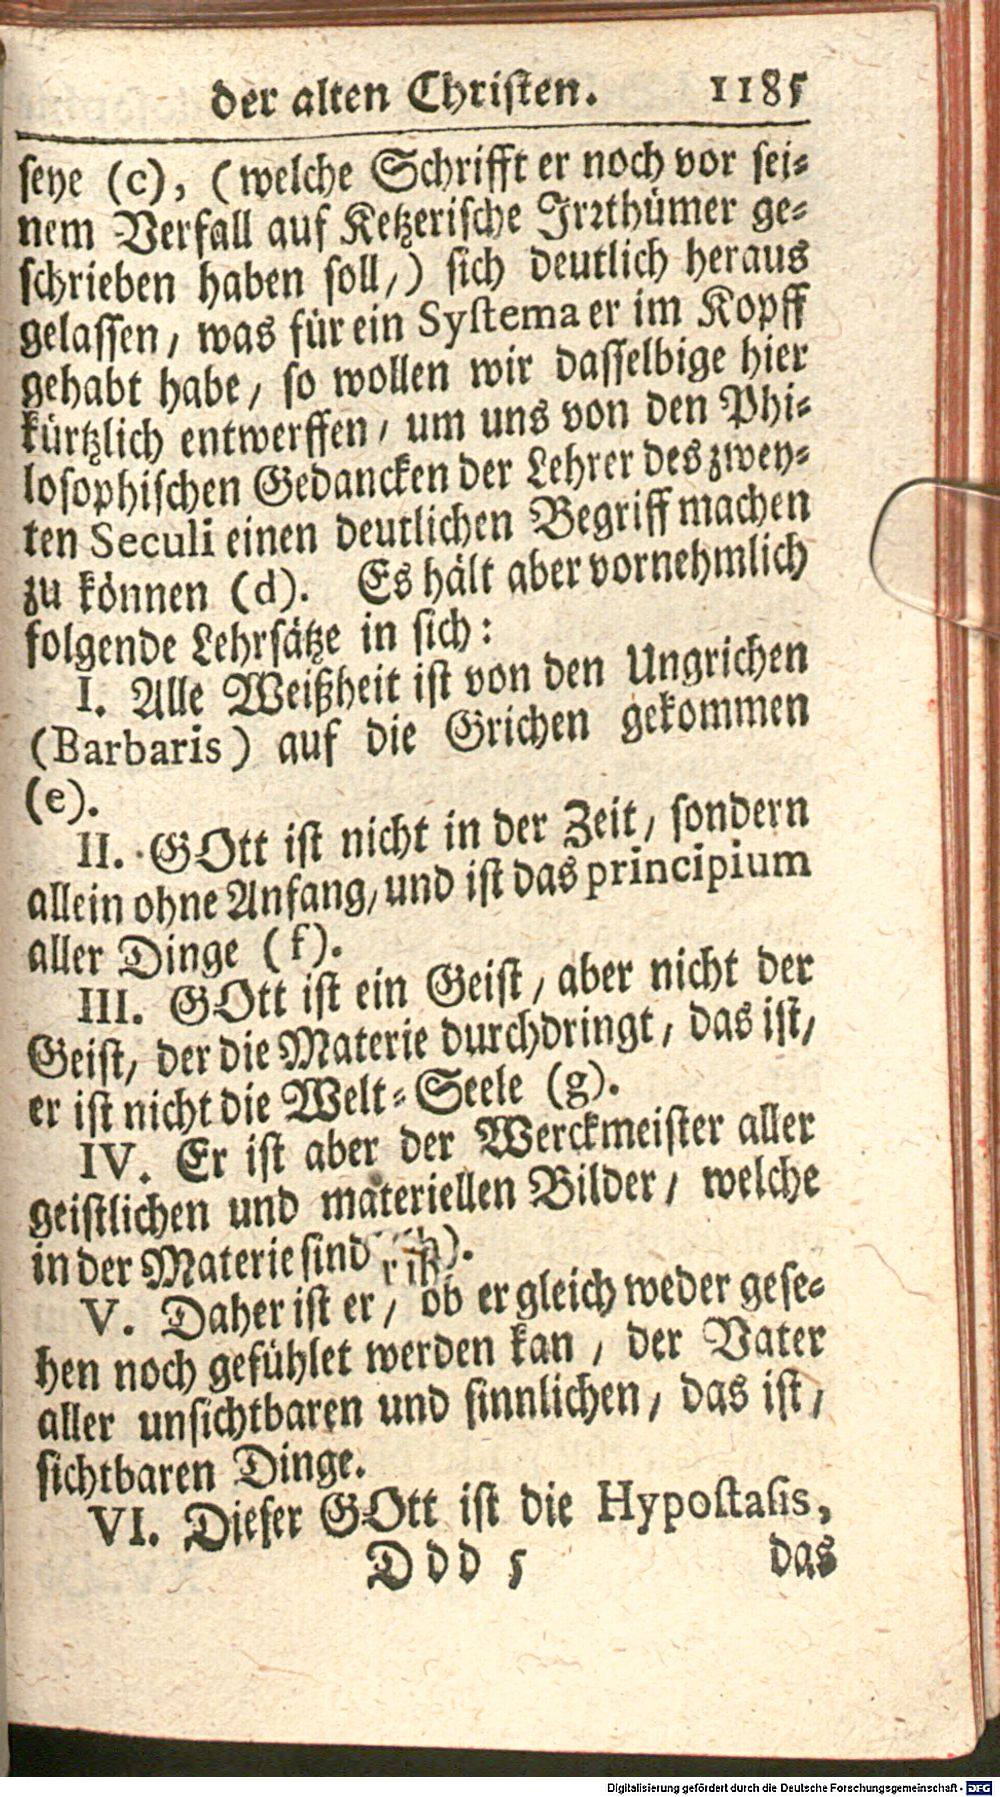 der alten Christen. 1185
seye (c), (welche Schrifft er noch vor sei⸗
nem Verfall auf Ketzerische Irrthümer ge⸗
schrieben haben soll/) sich deutlich heraus
gelassen / was für ein Systema er im Kopff
gehabt habe / so wollen wir dasselbige hier
kürtzlich entwerffen / um uns von den Phi⸗
losophischen Gedancken der Lehrer des zwey⸗
ten Seculi einen deutlichen Begriff machen
zu können (d). Es hält aber vornehmlich
folgende Lehrsätze in sich:
I. Alle Weißheit ist von den Ungrichen
(Barbaris) auf die Grichen gekommen
(e).
II. GOtt ist nicht in der Zeit / sondern
allein ohne Anfang/ und ist das principium
aller Dinge (f).
III. GOtt ist ein Geist / aber nicht der
Geist/ der die Materie durchdringt / das ist/
er ist nicht die Welt⸗Seele (g).
IV. Er ist aber der Werckmeister aller
geistlichen und materiellen Bilder / welche
in der Materie sind
V. Daher ist er / ob er gleich weder gese⸗
hen noch gefühlet werden kan / der Vater
aller unsichtbaren und sinnlichen / das ist /
sichtbaren Dinge.
VI. Dieser GOtt ist die Hypostasis,
Ddd 5 das
Digitalisierung gefördert durch die Deutsche Forschungsgemeinschaft - DFG